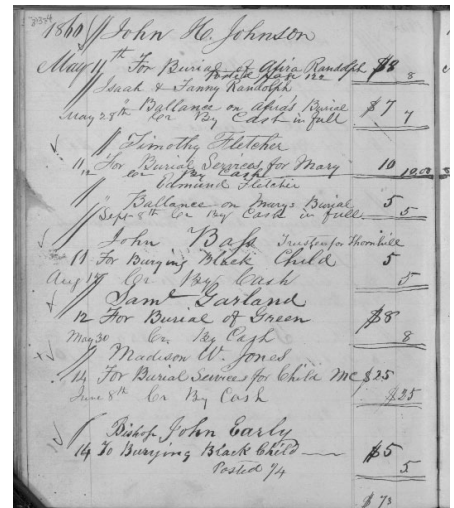 1860 // John H. Johnson
May 11th For Burial of Afira Randolph $8 8
Isaah & Fanny Randolph
" Ballance on Afria's Burial $7
May 28th Cr By Cash in full 7
// Timothy Fletcher
11 For Burial Services for Mary 10
12 Cr By Cash 10,00
// Edmund Fletcher
" Ballance on Marys Burial 5
Sept 8th Cr By Cash in full 5
// John Bass Trustee for Thornhill
11 For Burying Black Child 5
Aug 17 Cr By Cash 5
// Saml Garland
12 For Burial of Green $8
May 30 Cr By Cash 8
// Madison W. Jones
14 For Burial Services for Child Mc $25
June 8th Cr By Cash $25
// Bishop John Early
14 To Burying Black Child $5
Posted 1/4 5
$73